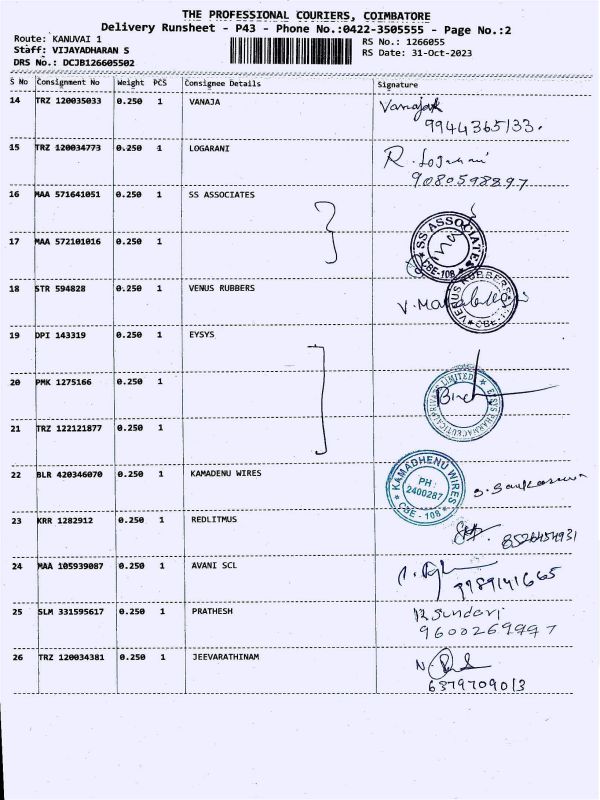 THE PROFESSIONAL COURIERS, COIMBATORE
Delivery Runsheet - P43 - Phone No.:0422-3505555 - Page No.:2
Route: KANUVAI 1 RS No.: 1266055
Staff: VIJAYADHARAN S RS Date: 31-Oct-2023
DRS No.: DCJB126605502
S No Consignment No Weight PCS Consignee Details Signature
14 TRZ 120035033 0.250 1 VANAJA Vanaja
9944365133.
15 TRZ 120034773 0.250 1 LOGARANI R. Logarani
9080598897
16 MAA 571641051 0.250 1 SS ASSOCIATES
SS ASSOCIATES CBE-108
17 MAA 572101016 0.250 1
18 STR 594828 0.250 1 VENUS RUBBERS
VENUS RUBBERS CBE
19 DPI 143319 0.250 1 EYSYS
20 PMK 1275166 0.250 1
EYSYS PHARMACEUTICAL PRIVATE LIMITED
21 TRZ 122121877 0.250 1
22 BLR 420346070 0.250 1 KAMADENU WIRES
KAMADHENU WIRES
PH :
2400287
CBE - 108
23 KRR 1282912 0.250 1 REDLITMUS
24 MAA 105939087 0.250 1 AVANI SCL
9989141665
25 SLM 331595617 0.250 1 PRATHESH R Sundari
9600269997
26 TRZ 120034381 0.250 1 JEEVARATHINAM
6379709013